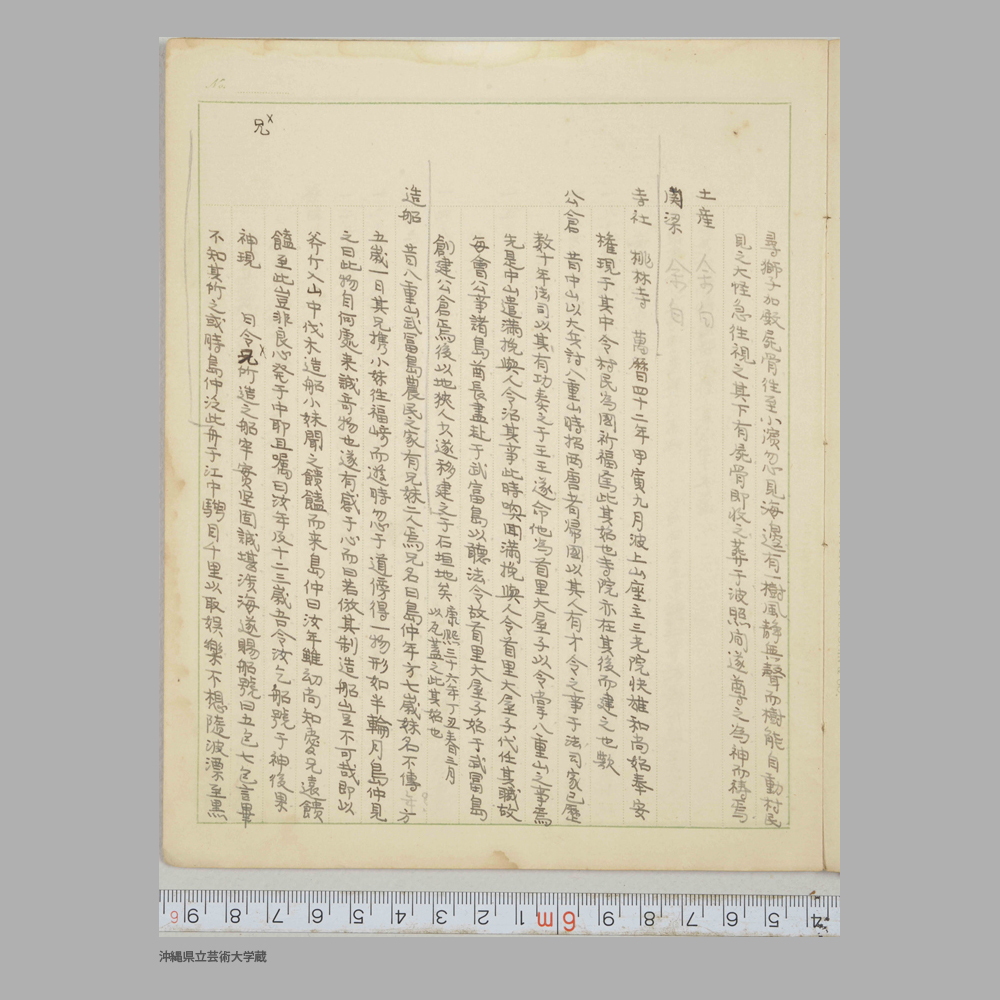 尋獅子加殿屍骨往至小濱忽見海邊有一樹風靜無聲而樹能自動村民
見之大怪急往視之其下有屍骨即收之葬于波照间遂尊之為神而禱焉
土産 余白
関梁 余白
寺社 桃林寺 萬暦四十二年甲寅九月波上山座主三光院快雄和尚始奉安
權現于其中令村民為國祈福焉此其始也寺院亦在其後而建之也歟
公倉 昔中山以大兵討八重山時招两唐者帰國以其人有才令之事于法司家已歴
数十年法司以其有功奏之于王王遂命他為首里大屋子以令掌八重山之事焉
先是中山遣滿挽與人令治其事此時喚囬滿挽與人令首里大屋子代任其職故
每會公事諸島酋長盡赴于武富島以聽法令故首里大屋子始于武富島
創建公倉焉後以地狹人夊遂移建之于石垣地矣 康熙三十六年丁丑春三月
以瓦蓋之此其始也
造船 昔八重山武富島農民之家有兄妹二人焉兄名曰島仲年方七歲妹名不傳年方
五歲一日其兄携小妹往福﨑而遊時忽于道傍得一物形如半輪月島仲見
之曰此物自何處来誠奇物也遂有感于心而曰若倣其制造船豈不可哉即以
斧斤入山中伐木造船小妹聞之饋饁而来島仲曰汝年雖幼尚知愛兄遠饋
饁至此豈非良心発于中耶且嘱曰汝年及十二三歲吾令汝乞船號于神後果
神現 曰令兄所造之船牢實堅固誠堪渉海遂賜船號曰五包七包言畢
不知其所之或時島仲泛此舟于江中騁目千里以取娱樂不想隨波漂至黒
兄x